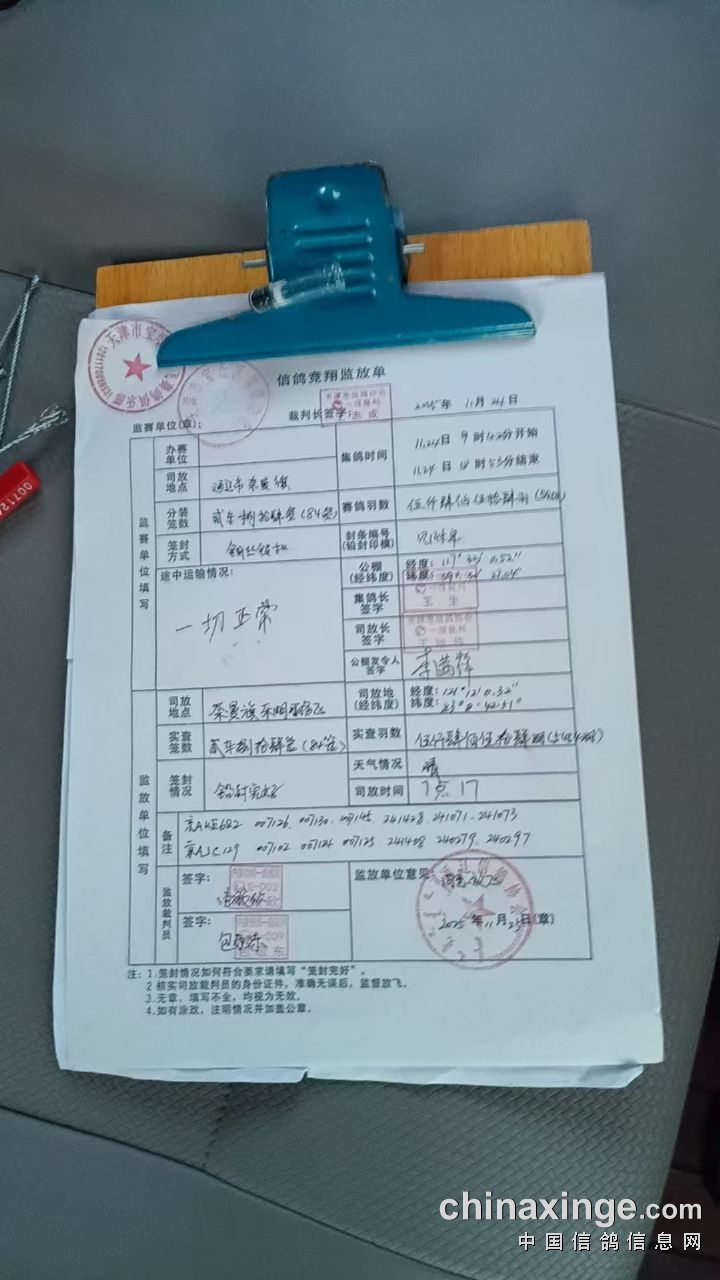 信鸽竞翔监放单
监赛单位(章)：
裁判长签字：
2025年 11月 24日
监赛单位填写
办赛单位
集鸽时间
11.24日 9时42分开始
11.24日 时53分结束
司放地点
通辽市奈曼旗
分装笼数
(84笼)
赛鸽羽数
伍仟肆佰伍拾肆羽
笼封方式
封条编号(铅封印模)
途中运输情况：
一切正常
公棚(经纬度)
经度：117°
纬度：39°
集鸽长签字
司放长签字
公棚发令人签字
李满辉
监放单位填写
司放地点
奈曼旗东明
司放地(经纬度)
经度：121°12′0.32″
纬度：43°
实查笼数
(84笼)
实查羽数
伍仟肆佰伍拾肆羽
笼封情况
铅封完好
天气情况
晴
司放时间
7点17
备注
京AKE682 007126. 007130. 007145. 241428. 241071. 241073
007102 007124 007125 241408 240279. 240297
监放裁判员
签字：
签字：
监放单位意见：
2025年11月25日(章)
注：1.笼封情况如何符合要求请填写“笼封完好”。
2 核实司放裁判员的身份证件，准确无误后，监督放飞。
3.无章、填写不全，均视为无效。
4.如有涂改，注明情况并加盖公章。
chinaxinge.com
中国信鸽信息网